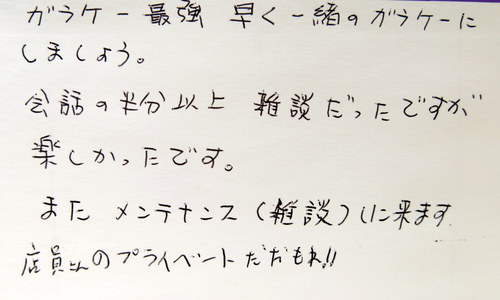 ガラケー最強 早く一緒のガラケーに
しましょう。
会話の半分以上 雑談だったですが
楽しかったです。
また メンテナンス(雑談)しに来ます
店員さんのプライベートだだもれ!!